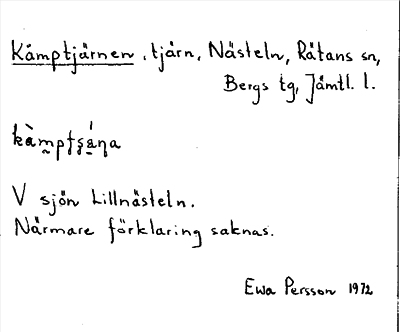 Kåmptjärnen, tjärn, Nästeln, Råtans sn,
Bergs tg, Jämtl. l.
kàmptʂɛ́ɳa
V sjön Lillnästeln.
Närmare förklaring saknas.
Ewa Persson 1972